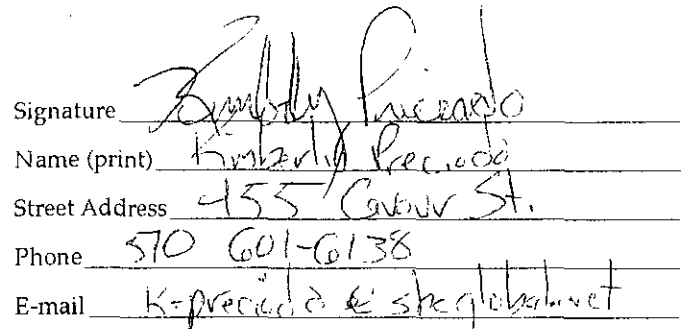 Signature Kimberly Preciado
Name (print) Kimberly Preciado
Street Address 455 Cavour St.
Phone 510 601-6138
E-mail k-preciado @ sbcglobal.net